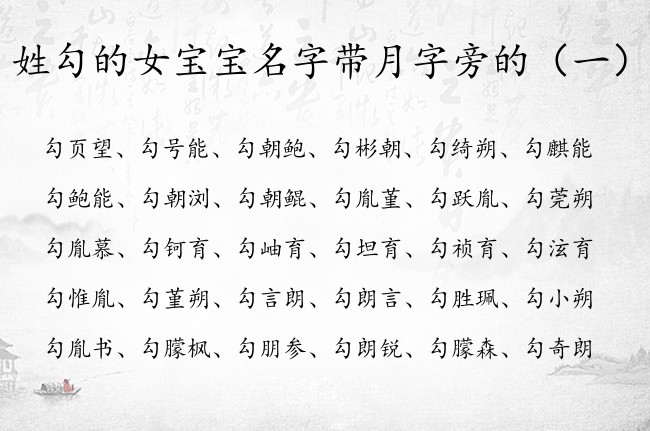 姓勾的女宝宝名字带月字旁的（一）
勾页望、勾号能、勾朝鲍、勾彬朝、勾绮朔、勾麒能
勾鲍能、勾朝浏、勾朝鲲、勾胤堇、勾跃胤、勾莞朔
勾胤慕、勾钶育、勾岫育、勾坦育、勾祯育、勾泫育
勾惟胤、勾堇朔、勾言朗、勾朗言、勾胜珮、勾小朔
勾胤书、勾朦枫、勾朋参、勾朗锐、勾朦森、勾奇朗